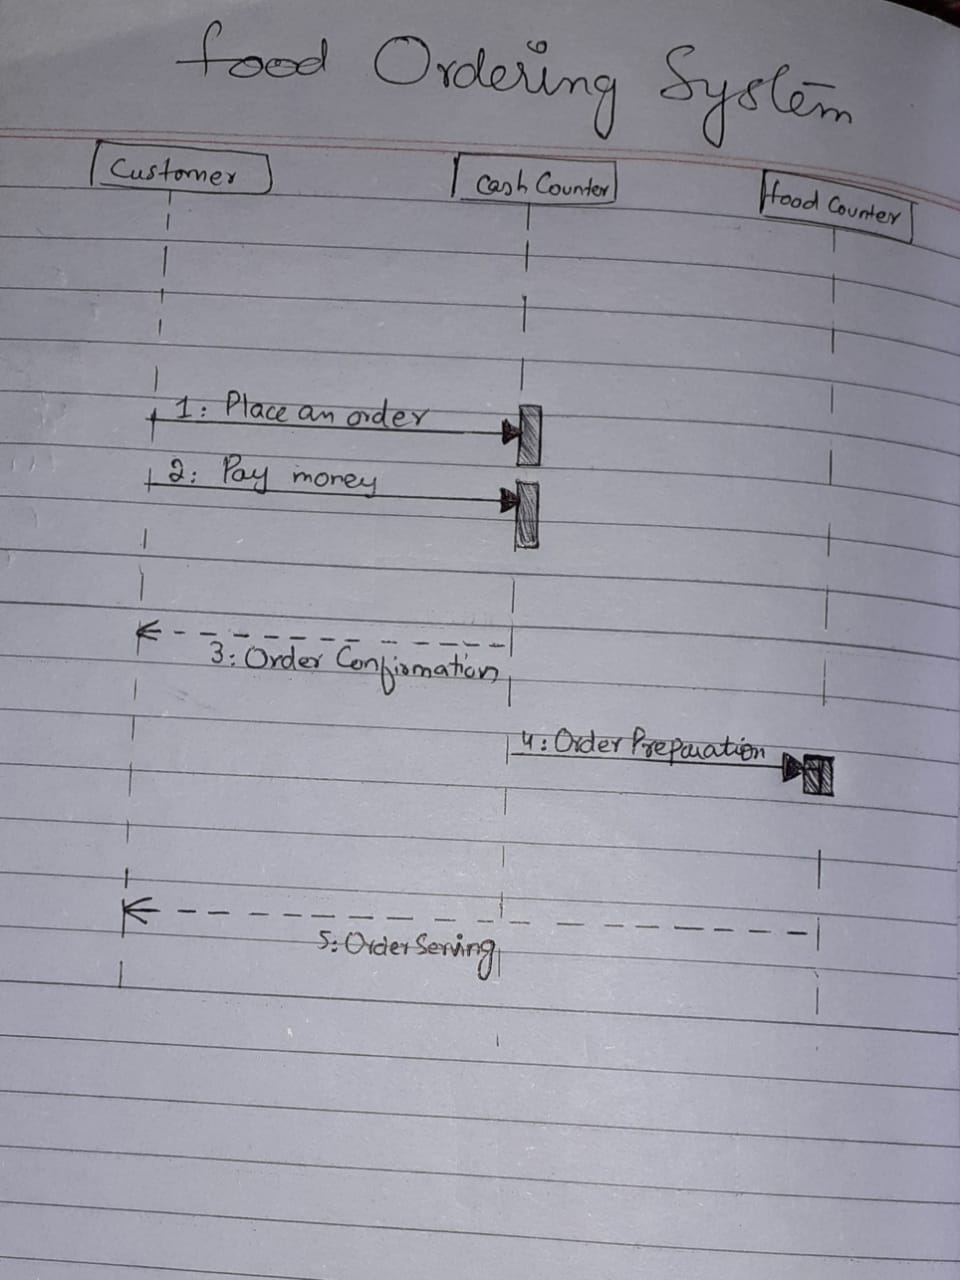 food Ordering System
Customer
Cash Counter
food Counter
1: Place an order
2: Pay money
3: Order Confirmation
4: Order Preparation
5: Order Serving